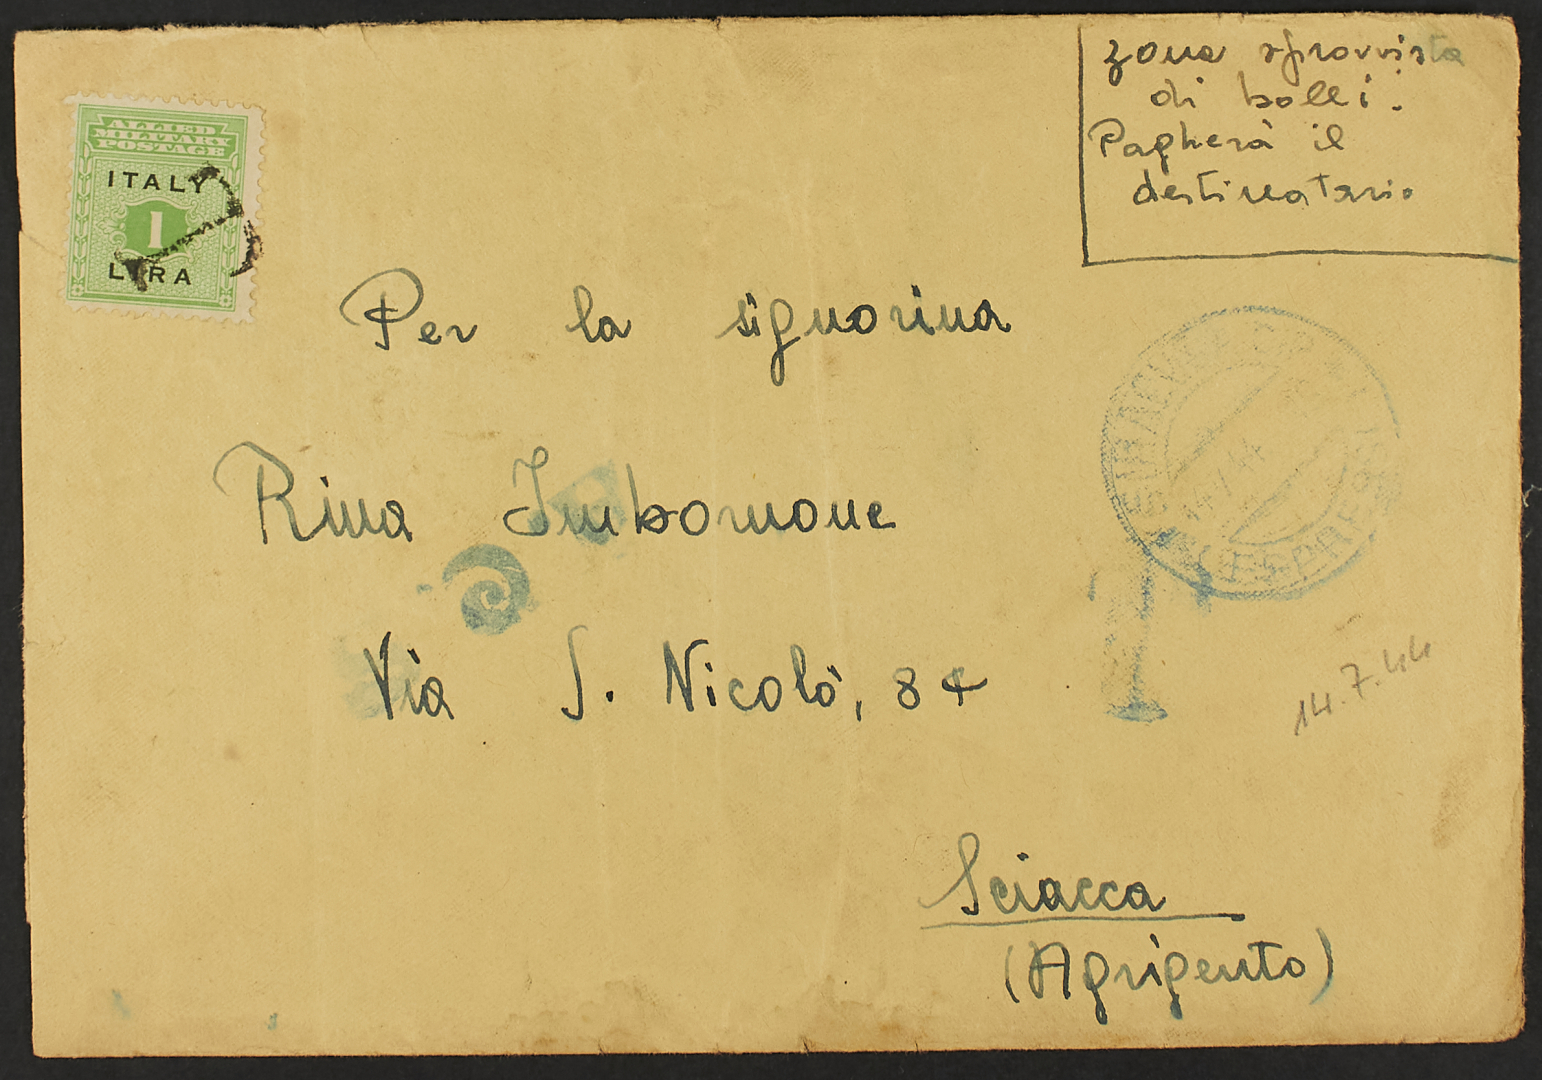 zona sprovvista
di bolli.
Pagherà il
destinatario
ALLIED
MILITARY
POSTAGE
ITALY
1
LIRA
T
Per la signorina
Rina Imbornone
Via S. Nicolò, 84
SIRACUSA
14.7.44
T
14.7.44
Sciacca
(Agrigento)